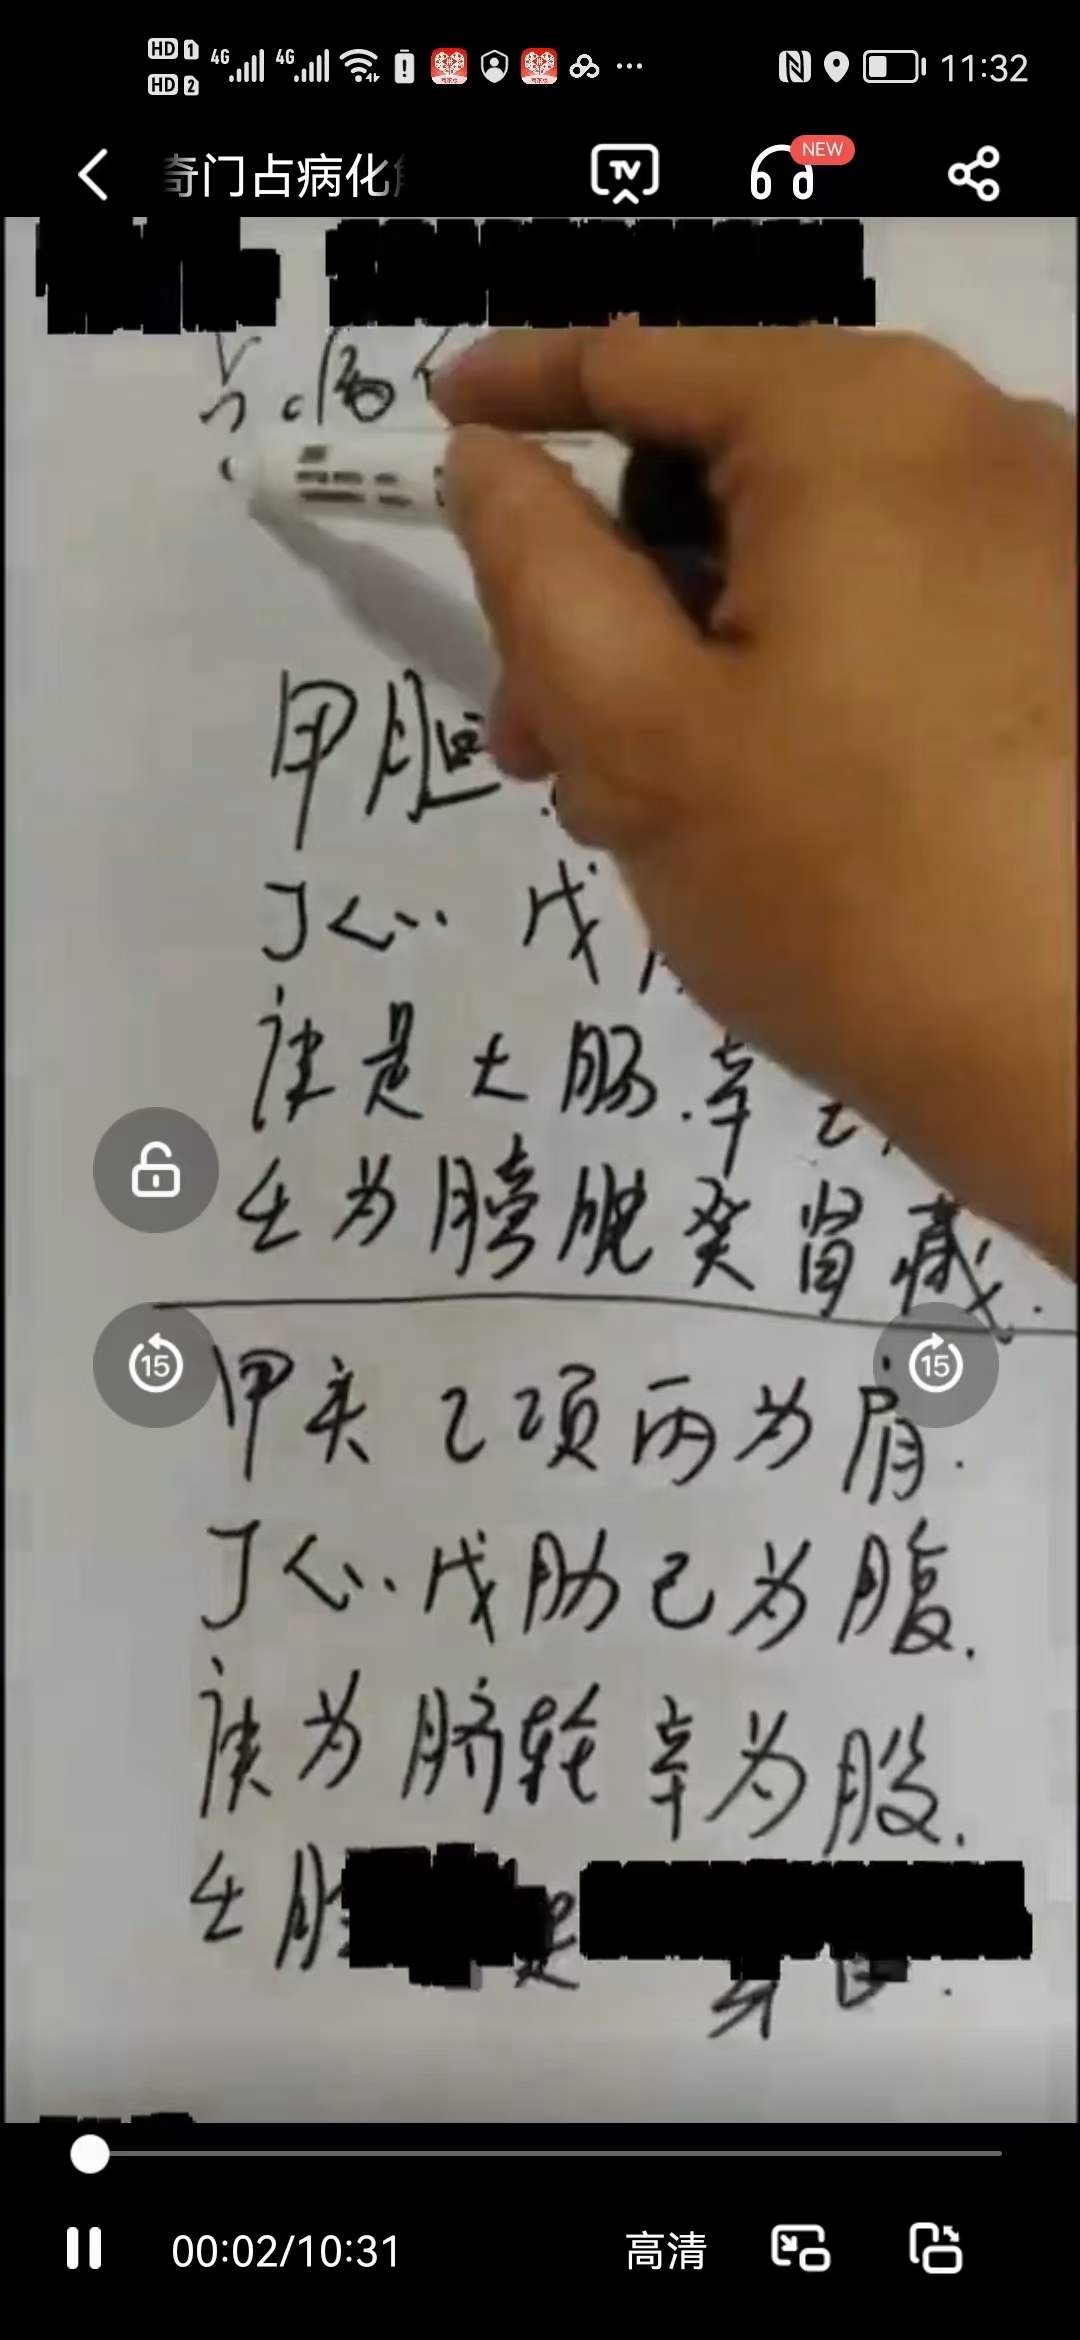 HD 1 4G 4G 11:32
HD 2
奇门占病化 NEW
病
甲胆
丁心 戊
庚是大肠.辛
壬为膀胱癸肾藏.
15 15
甲头乙项丙为肩.
丁心.戊肋己为腹.
庚为脐轮辛为股.
壬胫
00:02/10:31 高清